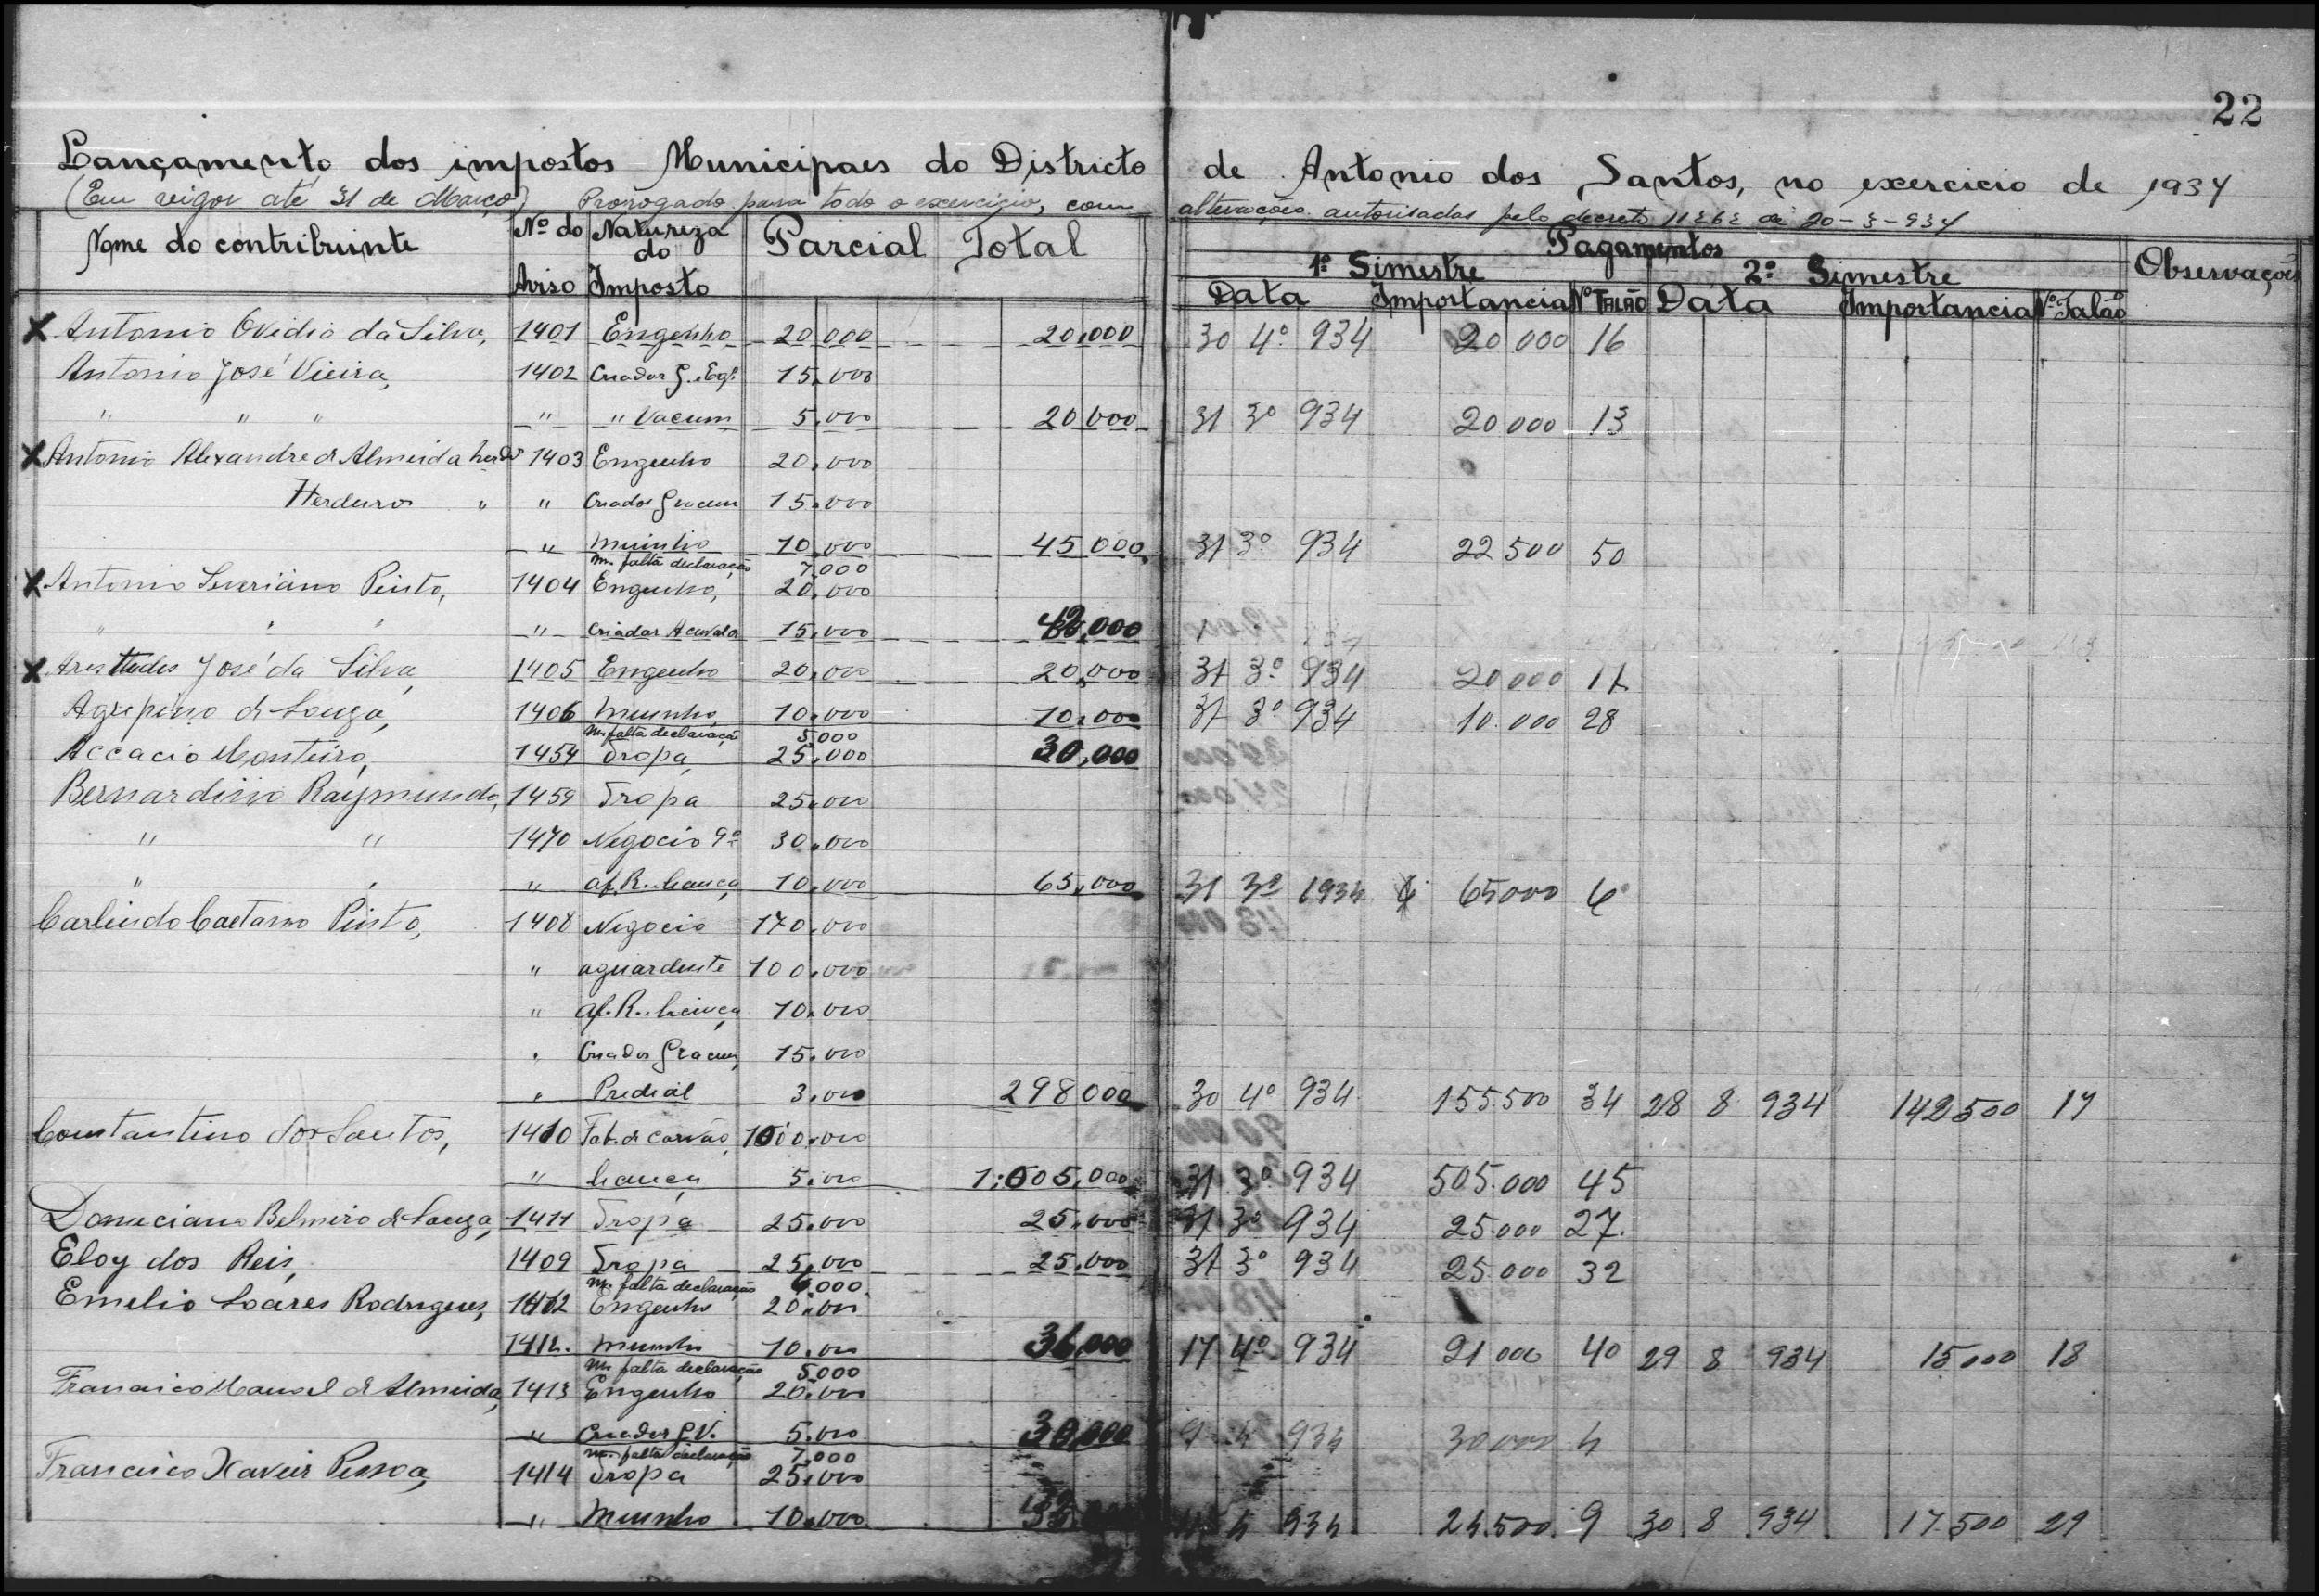 22
Lançamento dos impostos Municipaes do Districto de Antonio dos Santos, no exercicio de 1934
(Em vigor até 31 de Março) Prorogado para todo o exercicio, com alterações autorisadas pelo decreto 11262 de 20-3-934
Nome do contribuinte Nº do Aviso Natureza do Imposto Parcial Total Pagamentos Observações
1º Simestre 2º Simestre
Data Importancia Nº Talão Data Importancia Nº Talão
X Antonio Ovidio da Silva, 1401 Engenho 20,000 20,000 30 4º 934 20 000 16
Antonio José Vieira, 1402 Criador G. Eql. 15,000
" " " " " Vacum 5,000 20,000 31 3º 934 20 000 13
X Antonio Alexandre de Almeida herdº 1403 Engenho 20,000
Herdeiros " " Criador G vacum 15,000
" Muinho 10,000 45 000 31 3º 934 22 500 50
M. falta declaração 7,000
X Antonio Severiano Pinto, 1404 Engenho, 20,000
" " " " Criador A cavalar 15,000 42,000
X Aristides José da Silva, 1405 Engenho 20,000 20,000 31 3º 934 20 000 11
Agripino de Souza, 1406 Muinho 10,000 10,000 31 3º 934 10.000 28
M. falta declaração 5,000
Accacio Monteiro, 1454 Tropa, 25,000 30,000
Bernardino Raymundo, 1459 Tropa 25,000
" " 1470 Negocio 9º 30,000
" " " af. R. licença 10,000 65,000 31 3º 1934 65000 6
Carlindo Caetano Pinto, 1408 Negocio 170,000
" aguardente 100,000
" af. R. licença 10,000
" Criador G vacum, 15,000
" Predial 3,000 298 000 30 4º 934 155.500 34 28 8 934 142 500 17
Constantino dos Santos, 1410 Fab. de carvão, 1000,000
" licença 5,000 1:005,000 31 3º 934 505.000 45
Domiciano Belmiro de Souza, 1411 Tropa 25,000 25,000 31 3º 934 25.000 27.
Eloy dos Reis, 1409 Tropa 25,000 25,000 31 3º 934 25.000 32
M. falta declaração 6,000
Emelio Soares Rodrigues, 1412 Engenho 20,000
1412. Muinho 10,000 36,000 17 4º 934 21 000 40 29 8 934 15,000 18
M. falta declaração 5,000
Francisco Manoel de Almeida, 1413 Engenho 20,000
" Criador G.V. 5,000 30,000 9 4 934 30 000 4
M. falta declaração 7,000
Francisco Xavier Pessoa, 1414 Tropa 25,000
" Muinho 10,000 4 934 24.500 9 30 8 934 17.500 29